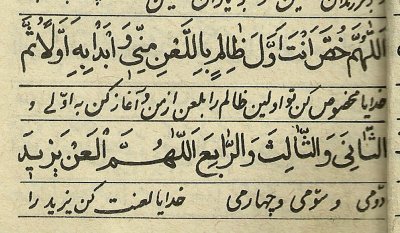 اَللّٰهُمَّ خُصَّ اَنْتَ اَوَّلَ ظَالِمٍ بِاللَّعْنِ مِنّٖى وَابْدَاْ بِهٖ اَوَّلاً ثُمَّ
خدایا مخصوص کن تو اولین ظالم را بلعن از من و آغاز کن به اوّلی و
الثّانِىَ وَالثّٰالِثَ وَالرّٰابِعَ اَللّٰهُمَّ الْعَنْ يَزٖيدَ
دوّمی و سوّمی و چهارمی خدایا لعنت کن یزید را